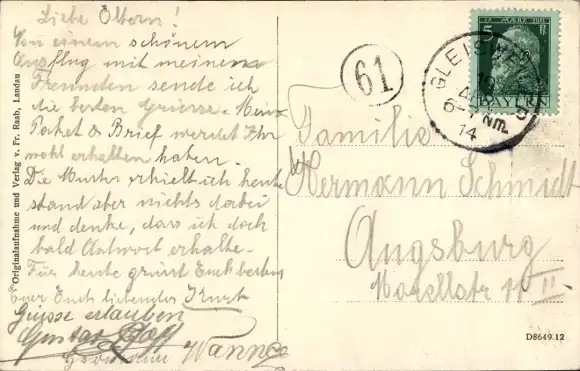 Liebe Eltern!
Von einem schönem
Ausflug mit meinem
Freunden sende ich
die besten Grüsse. Mein
Paket & Brief werdet Ihr
wohl erhalten haben.
Die Muster erhielt ich heute
stand aber nichts dabei
und denke, dass ich doch
bald Antwort erhalte.
Für heute grüsst Euch bestens
Euer Euch liebender Kurt
Grüsse erlauben
Gustav
Originalaufnahme und Verlag v. Fr. Raab, Landau
61
12. MÄRZ 1911
5
BAYERN
GLEISWEILER
19
14
Familie
Hermann Schmidt
Augsburg
II
D8649.12